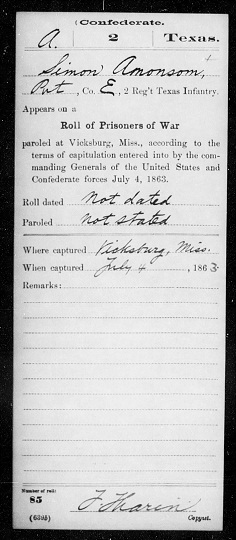 (Confederate.
A. 2 Texas.
Simon Amonsom,
Pvt, Co. E, 2 Reg't Texas Infantry.
Appears on a
Roll of Prisoners of War
paroled at Vicksburg, Miss., according to the
terms of capitulation entered into by the com-
manding Generals of the United States and
Confederate forces July 4, 1863.
Roll dated Not dated
Paroled not stated
Where captured Vicksburg, Miss.
When captured July 4, 1863.
Remarks:
Number of roll:
85
(639b) F Tharin
Copyist.